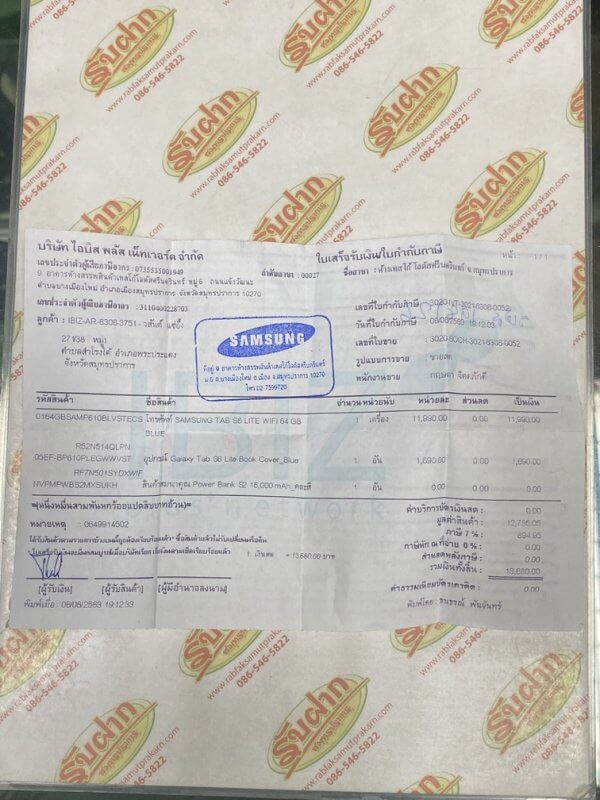 รับฝาก
www.rabfaksamutprakarn.com
086-546-5822
บริษัท ไอบิส พลัส เน็ทเวอร์ค จำกัด
ใบเสร็จรับเงิน/ใบกำกับภาษี
หน้า : 1 / 1
เลขประจำตัวผู้เสียภาษีอากร : 0735533001949
ลำดับสาขา : 00027
9 อาคารห้างสรรพสินค้าเทสโก้โลตัสศรีนครินทร์ หมู่ 6
ตำบลบางเมืองใหม่ อำเภอเมืองสมุทรปราการ จังหวัดสมุทรปราการ 10270
เลขประจำตัวผู้เสียภาษีอากร : 3110400228703
ลูกค้า : IBIZ-AR-6306-3751 -
ตำบลสำโรงใต้ อำเภอพระประแดง
จังหวัดสมุทรปราการ
เลขที่ใบกำกับภาษี
วันที่ใบกำกับภาษี : 06/06/2563 19:12:03
เลขที่ใบขาย
รูปแบบการขาย : ขายสด
พนักงานขาย : กฤษดา จิตตภักดี
SAMSUNG
ที่อยู่ 9 อาคารห้างสรรพสินค้าเทสโก้โลตัสศรีนครินทร์
ม.6 ต.บางเมืองใหม่ อ.เมือง จ.สมุทรปราการ 10270
โทร 02-7599720
รหัสสินค้า ชื่อสินค้า จำนวน หน่วยนับ หน่วยละ ส่วนลด เป็นเงิน
0164GBSAMP610BLVSTECS โทรศัพท์ SAMSUNG TAB S6 LITE WIFI 64 GB 1 เครื่อง 11,990.00 0.00 11,990.00
BLUE
R52N514QLPN
05EF-BP610PLEGWWVST อุปกรณ์ Galaxy Tab S6 Lite Book Cover_Blue 1 อัน 1,690.00 0.00 1,690.00
RF7N501SYDXWIF
NVPMPWBS2MXSUKH สินค้าสมนาคุณ Power Bank S2 16,000 mAh_คละสี 1 อัน 0.00 0.00 0.00
=(หนึ่งหมื่นสามพันหกร้อยแปดสิบบาทถ้วน)=
ค่าบริการบัตรเงินสด : 0.00
หมายเหตุ : 0649914502
มูลค่าสินค้า : 12,785.05
ภาษี 7 % : 894.95
ภาษีหัก ณ ที่จ่าย 0 % : 0.00
1. เงินสด = 13,680.00 บาท
ส่วนลดหลังภาษี : 0.00
รวมเงินทั้งสิ้น : 13,680.00
ค่าธรรมเนียมบัตรเครดิต : 0.00
[ผู้รับเงิน] [ผู้รับสินค้า] [ผู้มีอำนาจลงนาม]
พิมพ์เมื่อ : 06/06/2563 19:12:33
พิมพ์โดย : ธนธรณ์ พันจันทร์